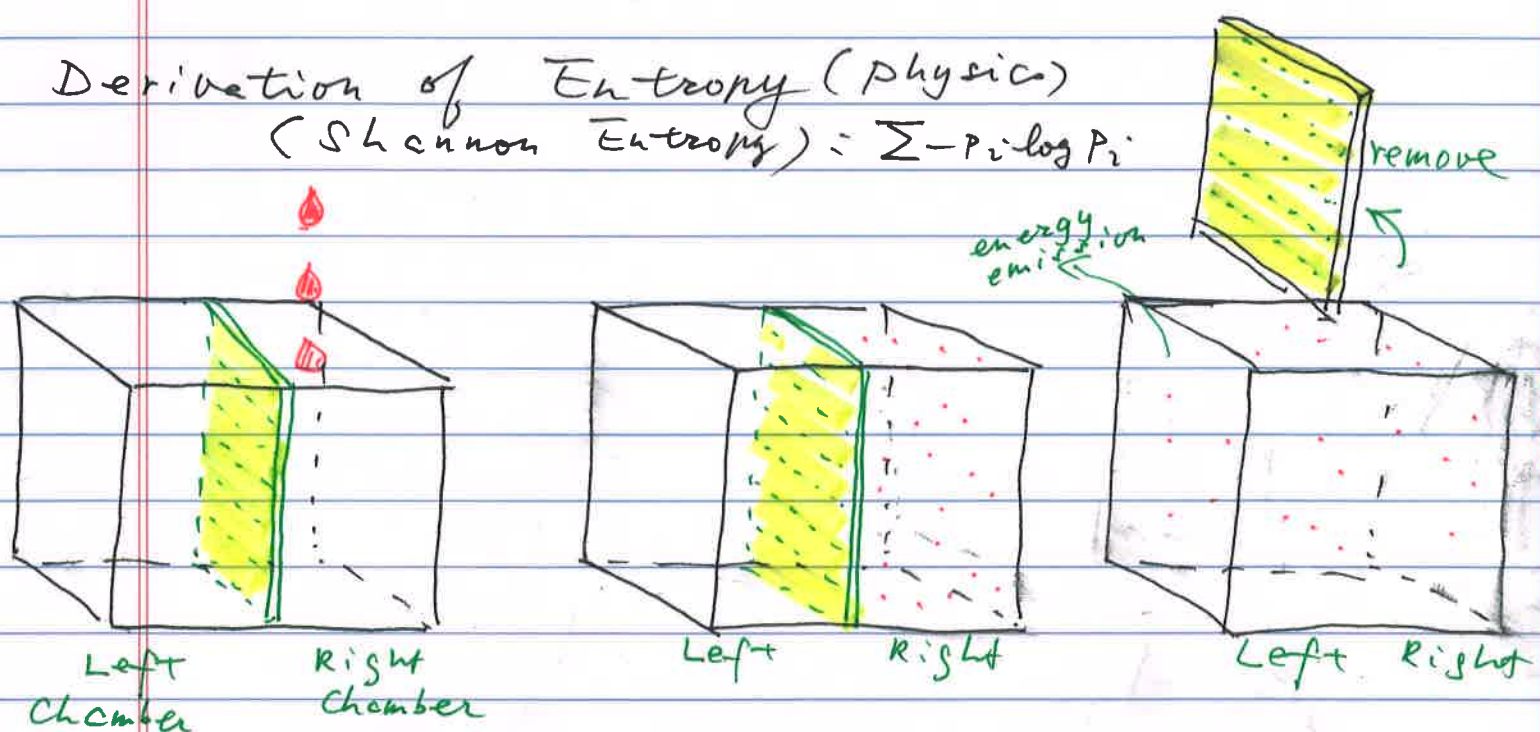 Derivation of Entropy (physics)
(Shannon Entropy) : Σ-Pi·log Pi
remove
energy
emission
Left
Chamber
Right
Chamber
Left
Right
Left
Right